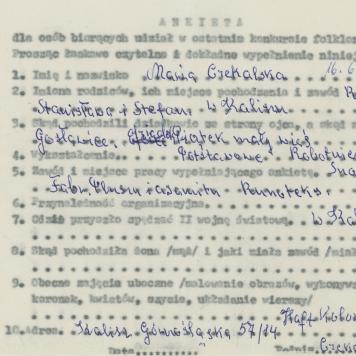 ANKIETA
dla osób biorących udział w ostatnim konkursie folklo
Prosząc łaskawe czytelne & dokładne wypełnienie niniej
1. Imię i nazwisko Maria Czekalska 16.
2. Imiona rodziców, ich miejsce pochodzenia i zawód R
Stanisława i Stefan w Kaliszu
3. Skąd pochodzili dziadkowie ze strony ojca, a skąd
Piątek mały wieś
4. Wykształcenie. Podstawowe
5. Zawód i miejsce pracy wypełniającego ankietę.
Fabr. Pluszu i aksamitu
6. Przynależność organizacyjna.
7. Gdzie przyszło spędzać II wojnę światową. w
8. Skąd pochodziła żona /mąż/ i jaki miała zawód /mia
9. Obecne zajęcia uboczne /malowanie obrazów, wykonyw
koronek, kwiatów, szycie, układanie wierszy/
Haft
10. Adres. Kalisz Górnośląska 57/14
Data